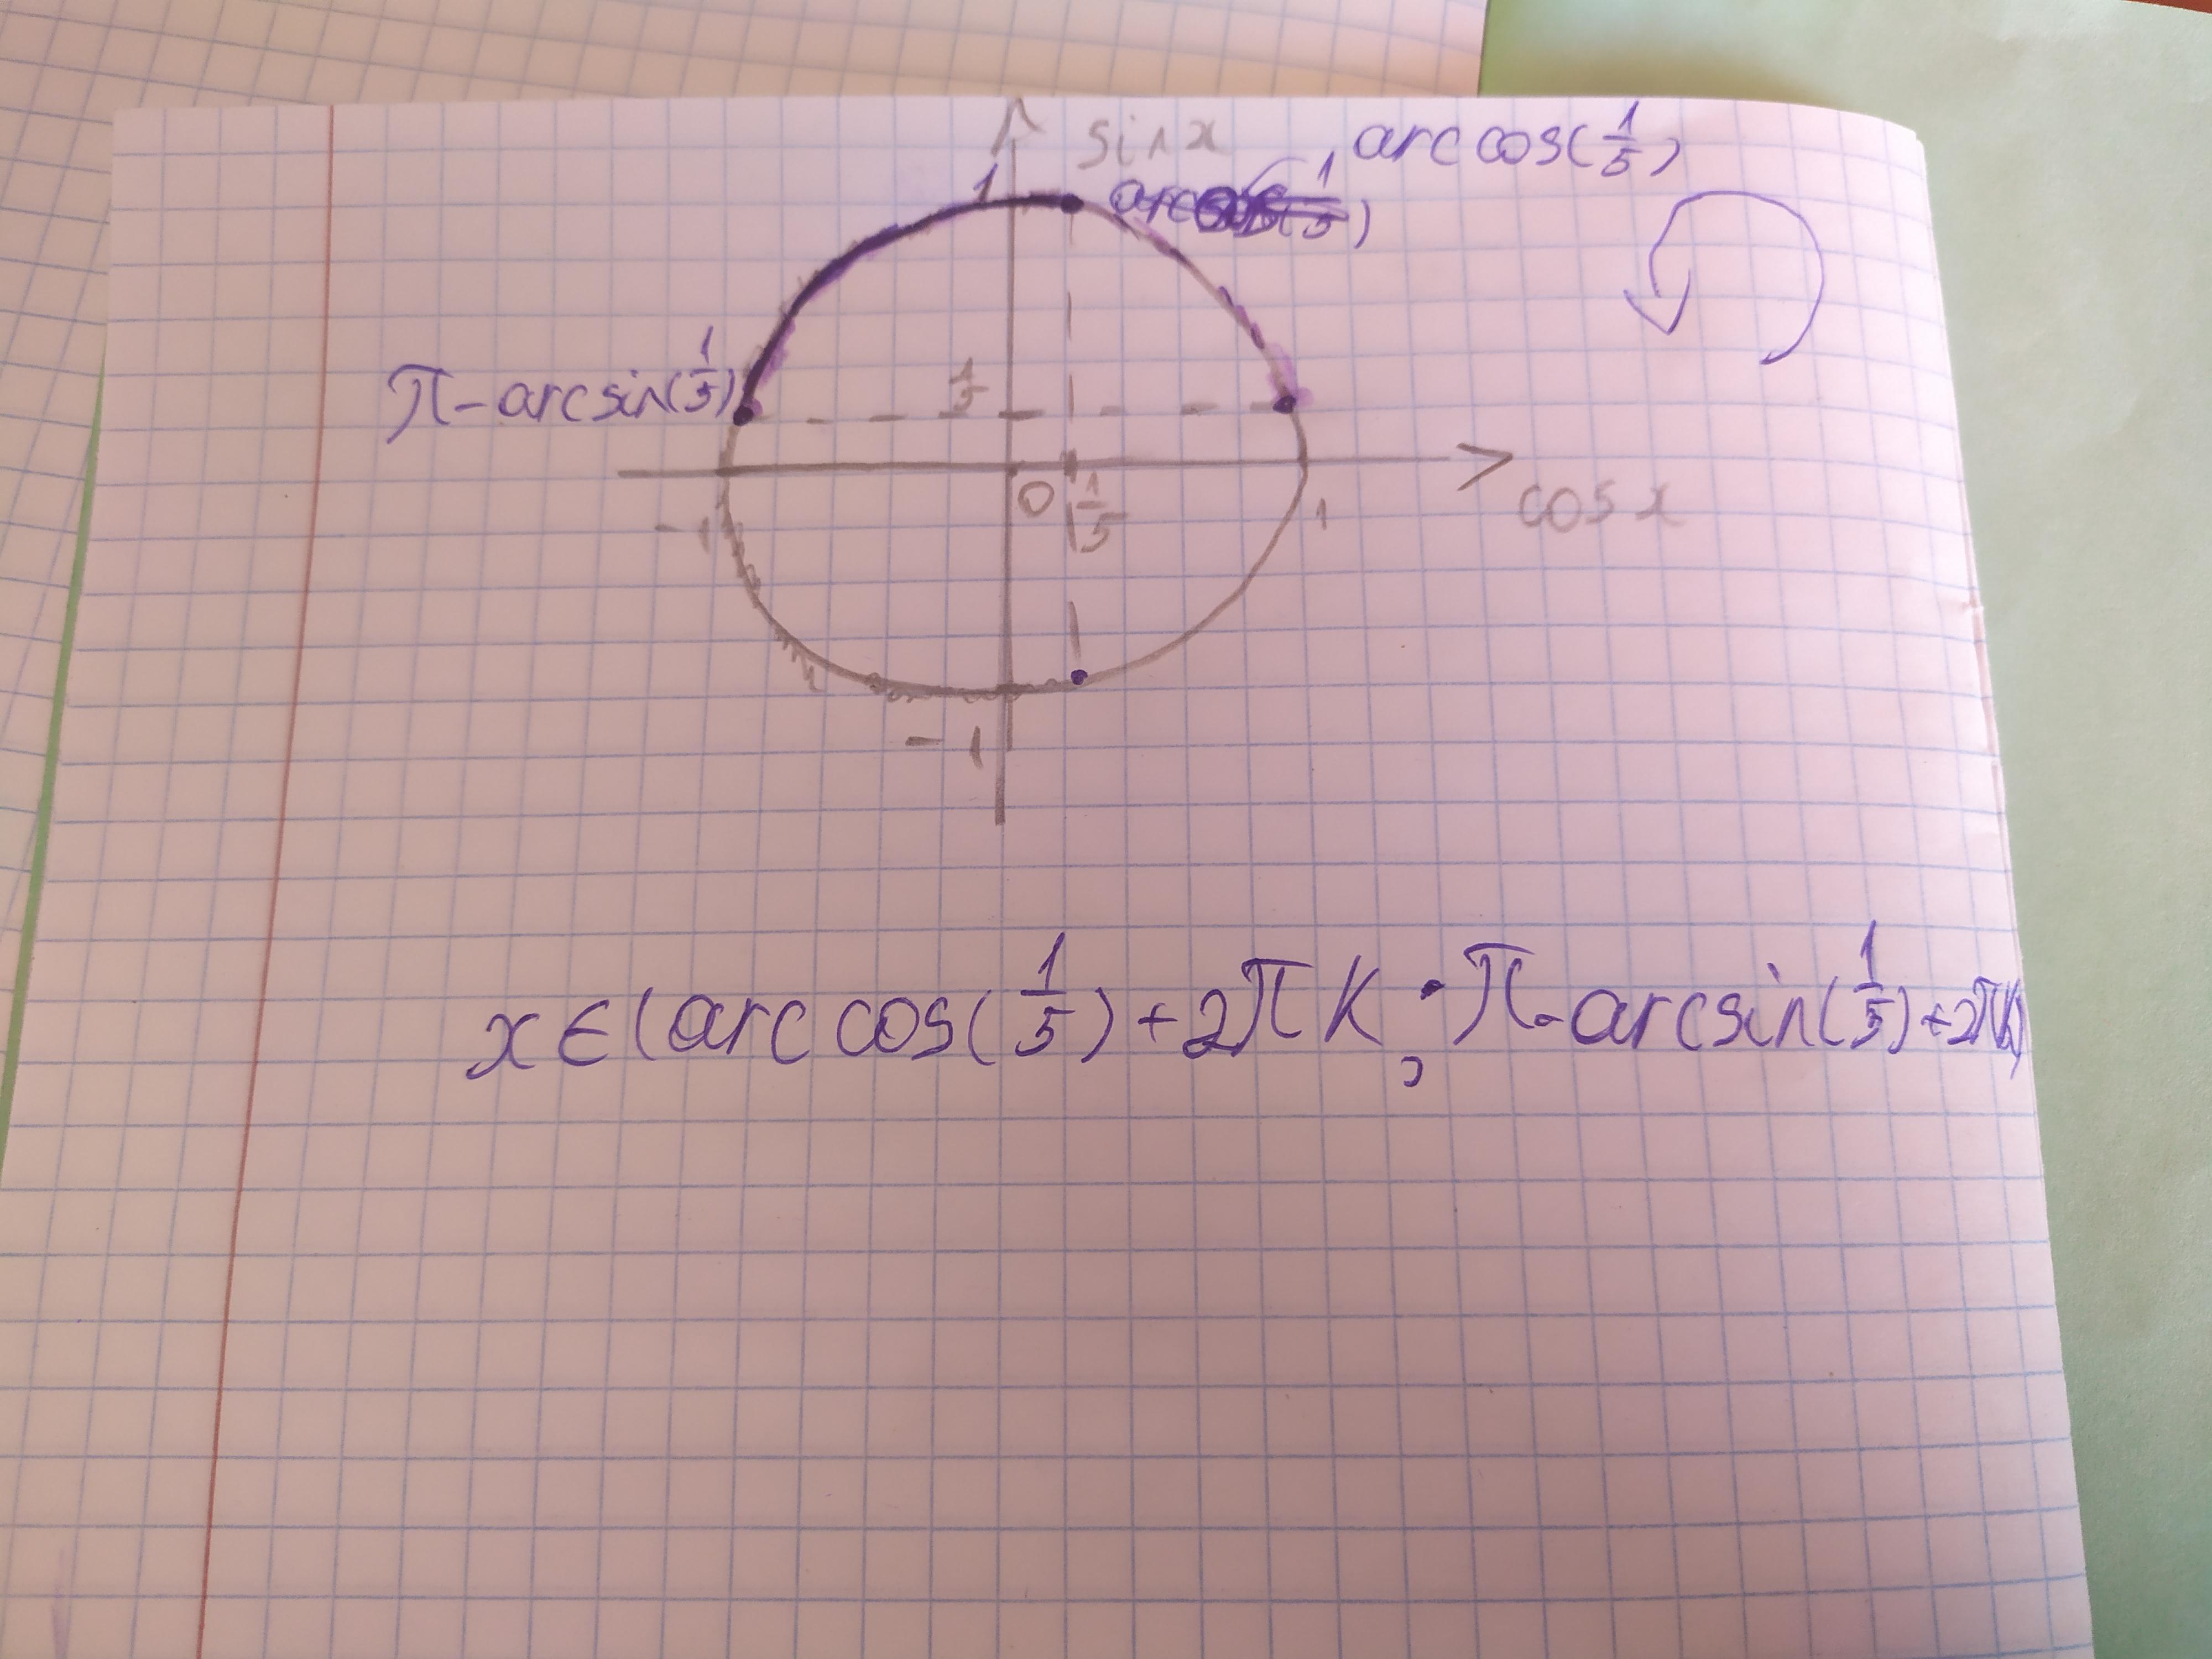 sin x
arccos(1/5)
1
π - arcsin(1/5)
1/5
0
1/5
-1
1
cos x
-1
x ∈ (arccos(1/5) + 2πk ; π - arcsin(1/5) + 2πk)